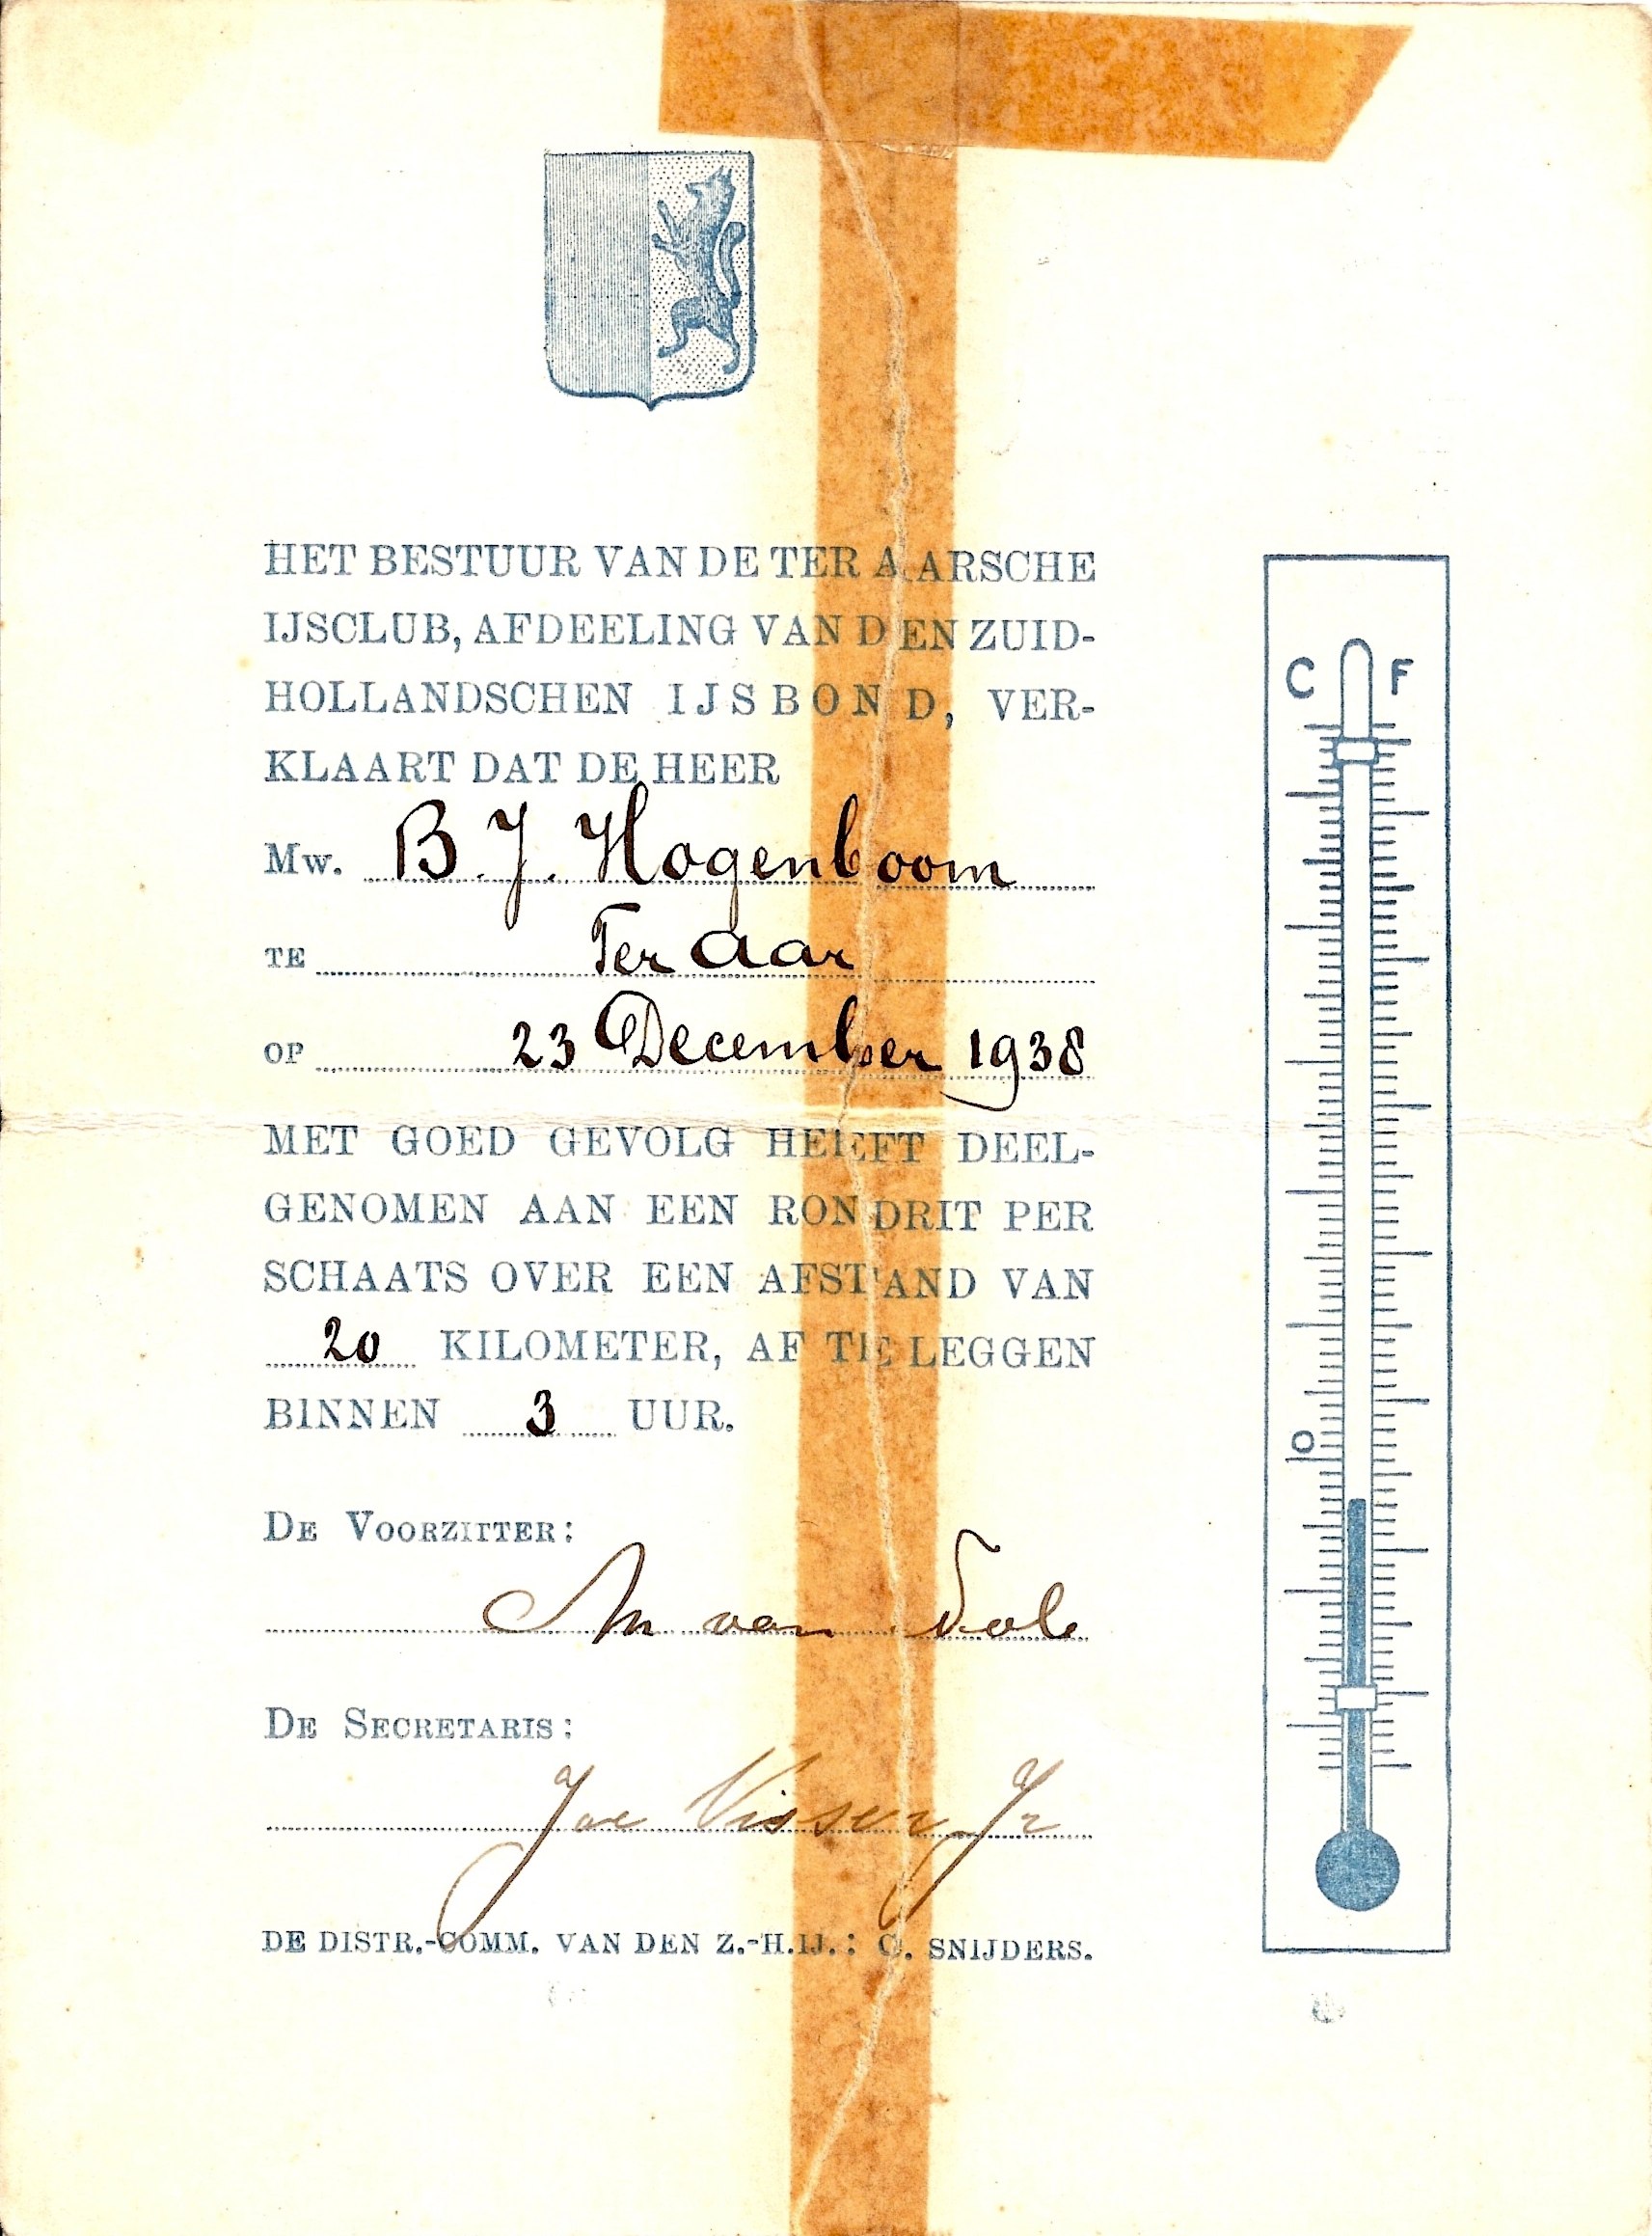 HET BESTUUR VAN DE TER AARSCHE
IJSCLUB, AFDEELING VAN DEN ZUID-
HOLLANDSCHEN IJSBOND, VER-
KLAART DAT DE HEER
MW. B. J. Hogenboom
TE Ter aar
OP 23 December 1938
MET GOED GEVOLG HEEFT DEEL-
GENOMEN AAN EEN RONDRIT PER
SCHAATS OVER EEN AFSTAND VAN
20 KILOMETER, AF TE LEGGEN
BINNEN 3 UUR.
DE VOORZITTER:
van
DE SECRETARIS:
Visser Jr
DE DISTR.-COMM. VAN DEN Z.-H.IJ.: C. SNIJDERS.
C F
0